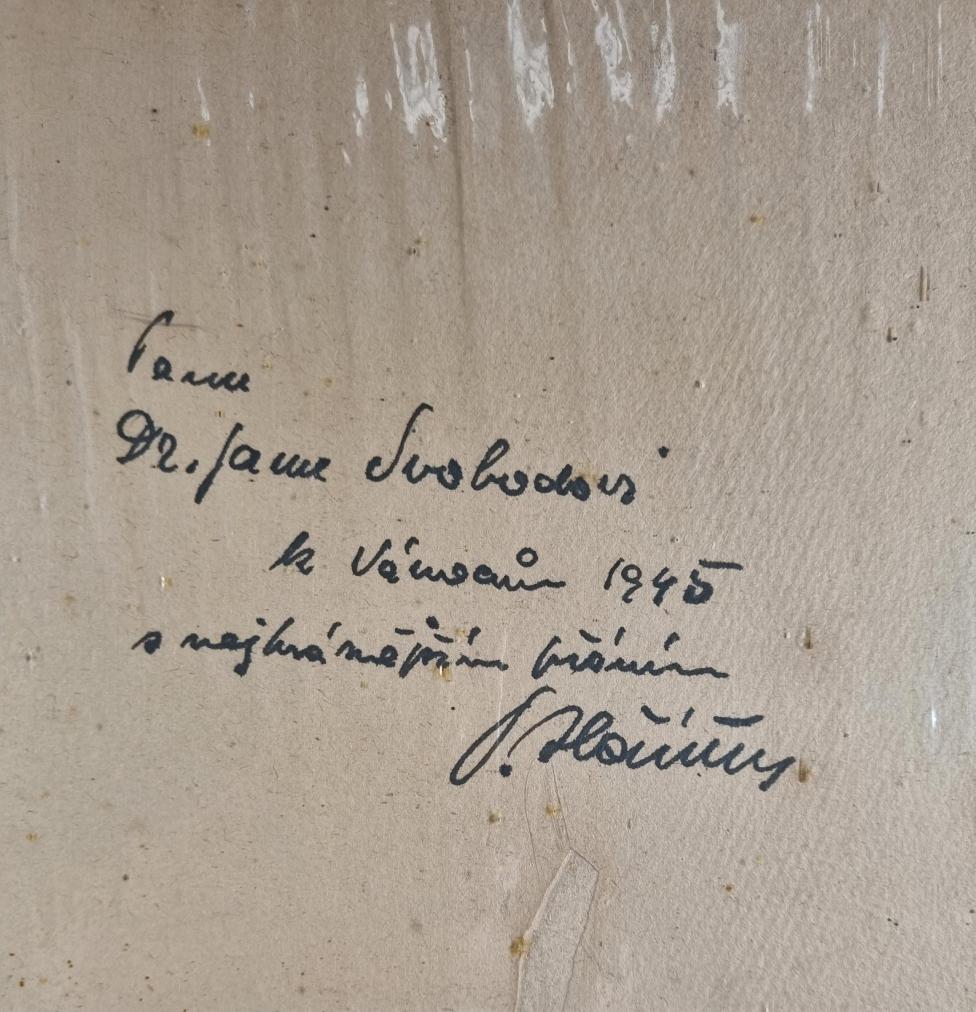 Panu
Dr. Janu Svobodovi
k Vánocům 1945
s nejkrásnějším přáním